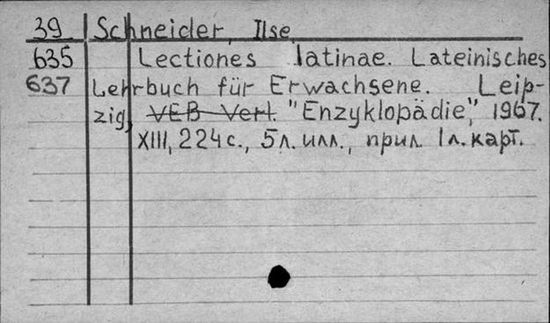 39 Schneider, Ilse
635 Lectiones latinae. Lateinisches
637 Lehrbuch für Erwachsene. Leip-
zig, VEB Verl. "Enzyklopädie", 1967.
XIII, 224 с., 5 л. илл., прил. 1 л. карт.